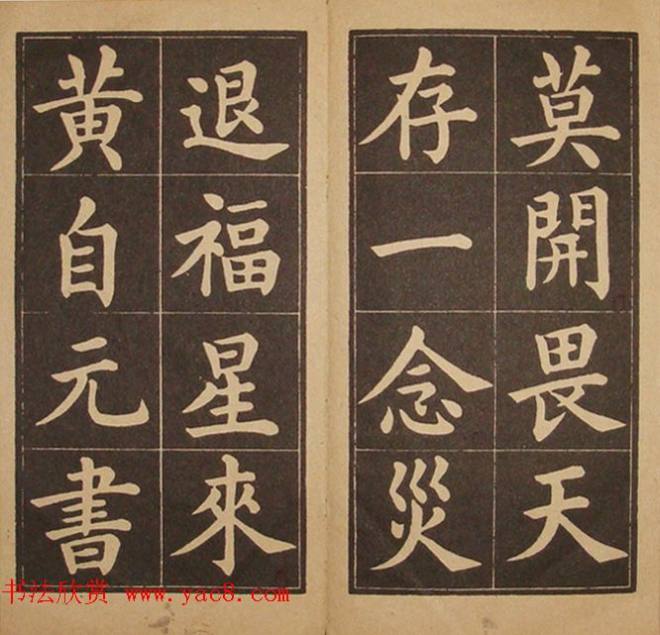 莫開畏天
存一念災
退福星來
黄自元書
书法欣赏 www.yac8.com